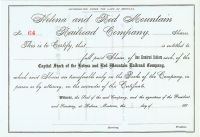 Helena and Red Mountain
Railroad Company.
No. 64 Shares
This is to Certify, that is entitled to
full paid Shares of One Hundred Dollars each, of the
Capital Stock of the Helena and Red Mountain Railroad Company,
which said Shares are transferable only on the Books of the Company, in
person or by attorney, on the surrender of this Certificate.
Witness, the Seal of the said Company, and the signatures of the President
and Secretary, at Helena, Montana, this day of 188
Secretary. President.